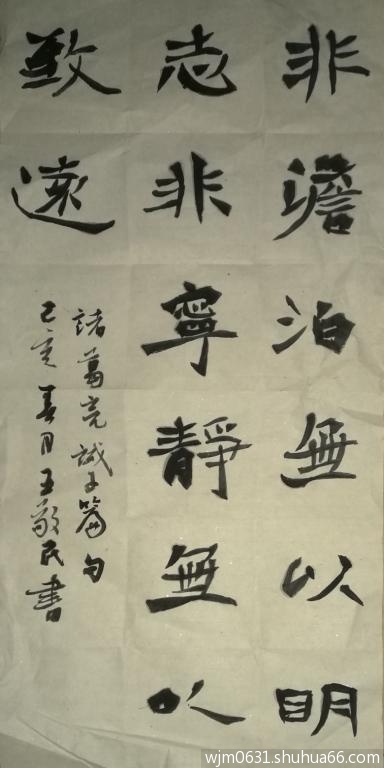 非澹泊無以明
志非寧靜無以
致遠
諸葛亮誡子篇句
己亥春月王敬民書
wjm0631.shuhua66.com